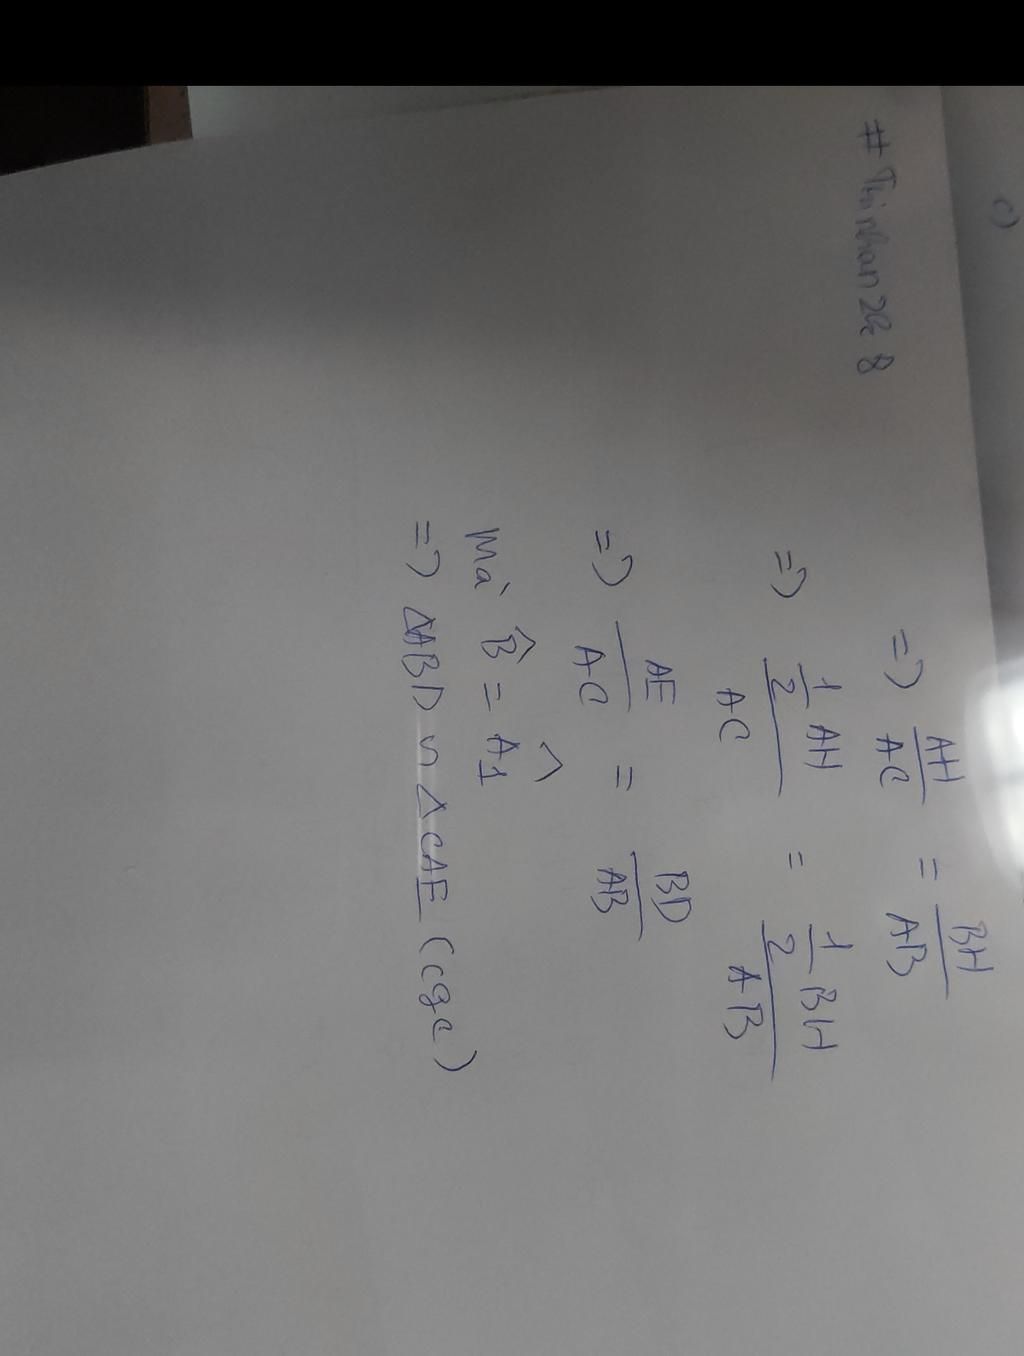 c)
=> AH/AC = BH/AB
=> 1/2 AH / AC = 1/2 BH / AB
=> AE/AC = BD/AB
mà B̂ = Â1
=> ΔABD ∽ ΔCAE (cgc)